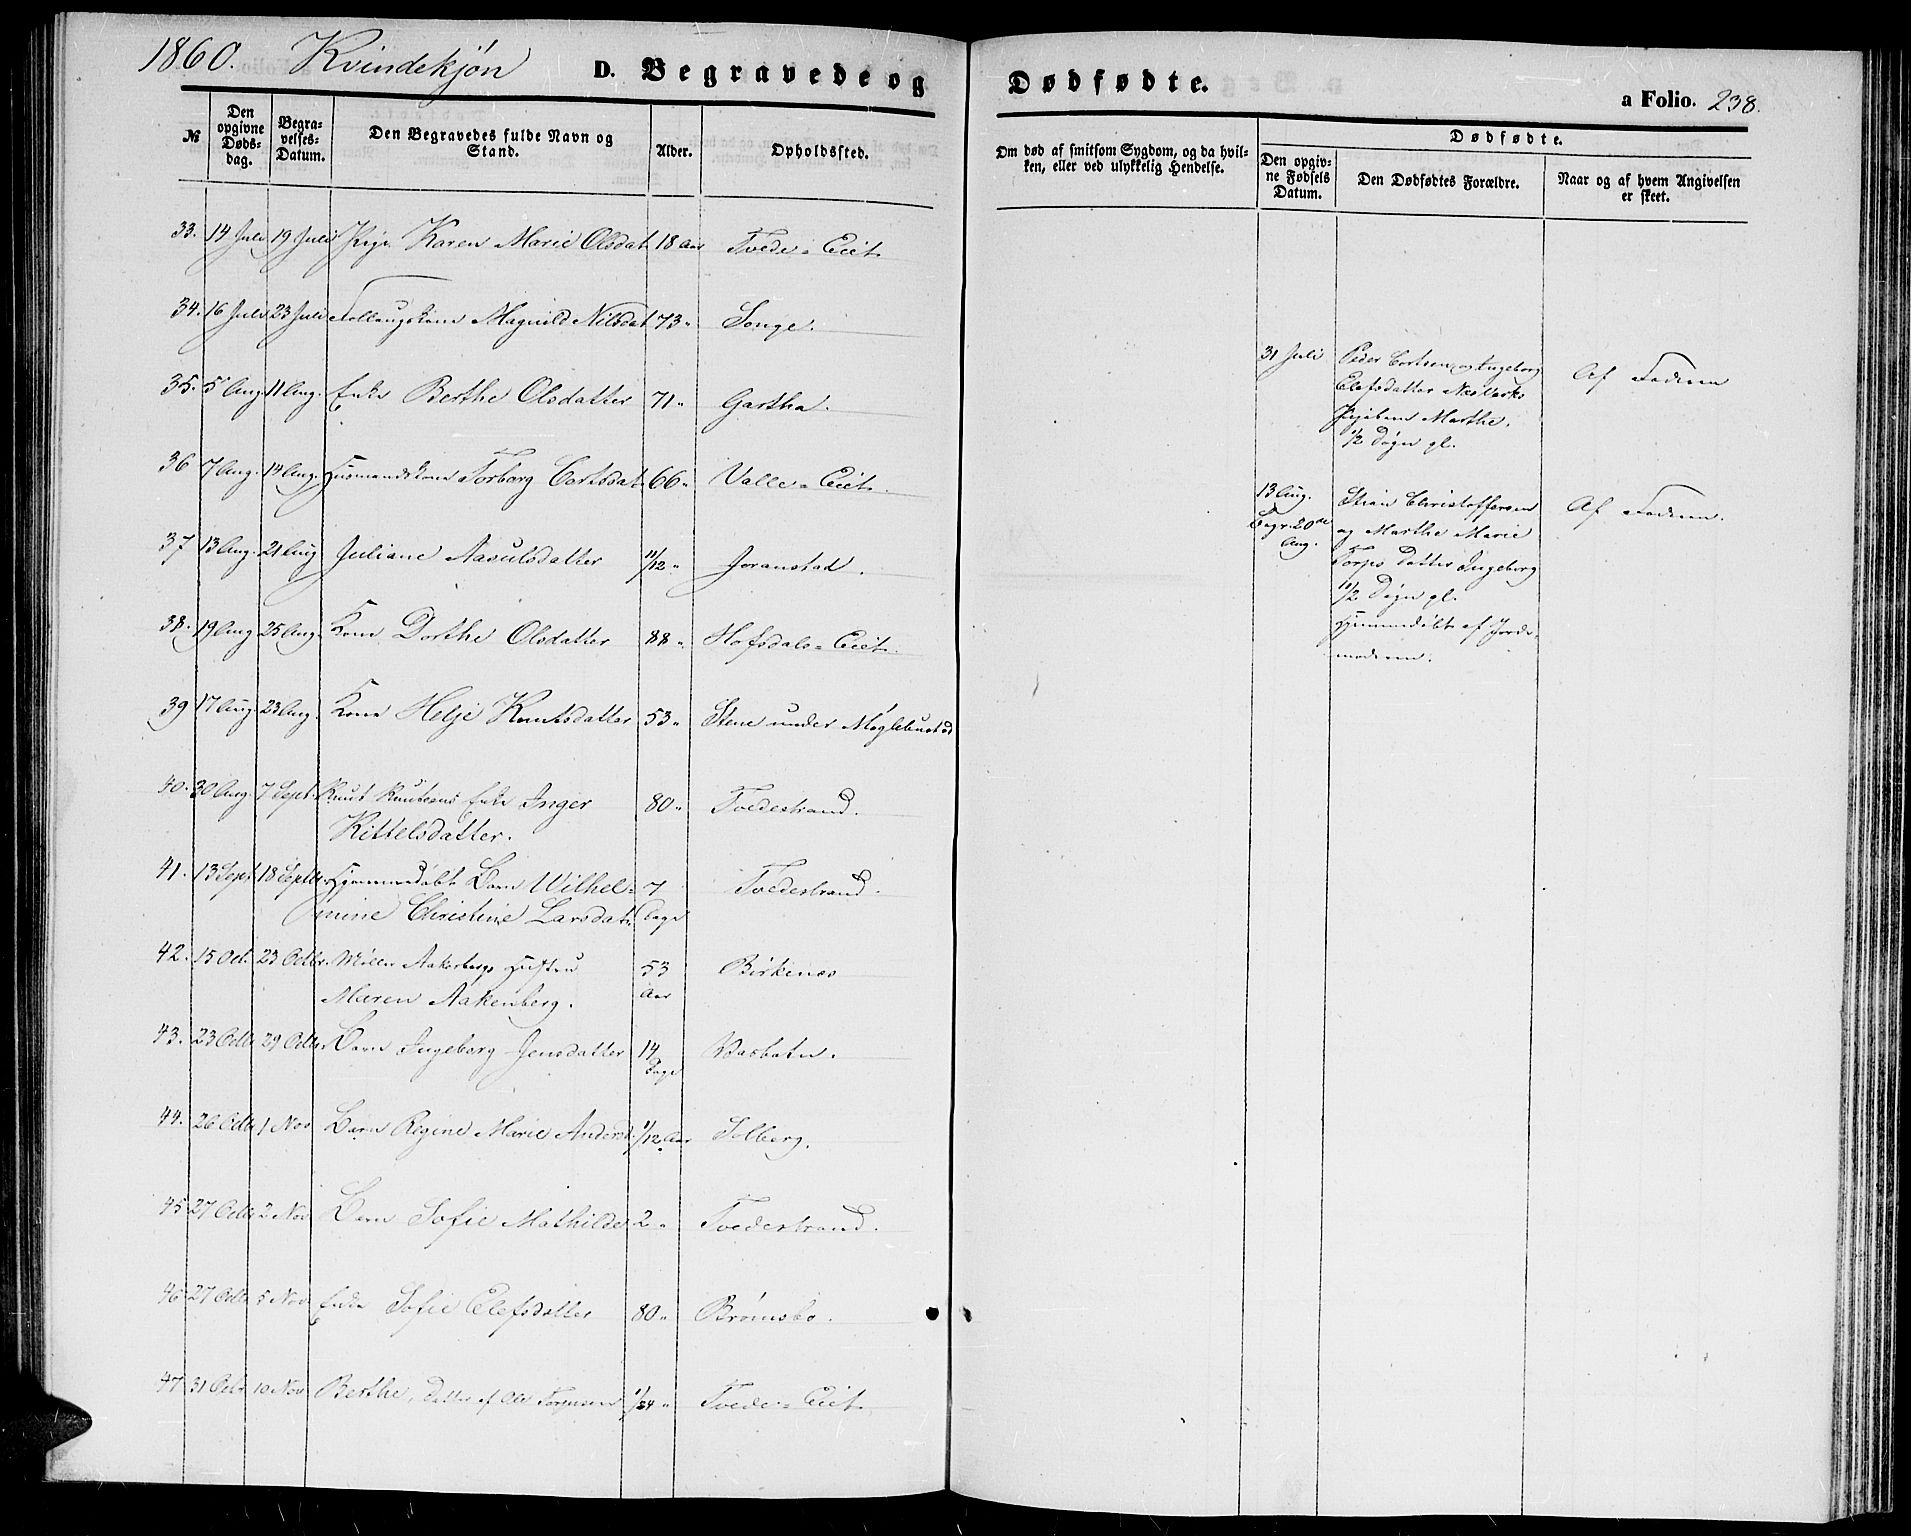 1860. Kvindekjøn D. Begravede og Dødfødte. a Folio. 238.
№ Den opgivne Dødsdag. Begravelses-Datum. Den Begravedes fulde Navn og Stand. Alder. Opholdssted.
Om død af smitsom Sygdom, og da hvilken, eller ved ulykkelig Hendelse. Dødfødte. Den opgivne Fødsels Datum. Den Dødfødtes Forældre. Naar og af hvem Angivelsen er skeet.
33. 14 Juli 19 Juli Pige Karen Marie Olsdat. 18 Aar Tvede-Eiet
34. 16 Juli 23 Juli Magnild Nilsdat 73 " Songe.
35. 5 Aug. 11 Aug. Enke Berthe Olsdatter 71 " Gartha.
36 7 Aug. 14 Aug. Husmandskone Torborg Carlsdat. 66 " Valle-Eiet.
37 13 Aug. 21 Aug Juliane Aasulsdatter 11/12 " Goranstad.
38. 19 Aug 25 Aug. Kone Dorthe Olsdatter 88 " Hofsdals-Eiet.
39 17 Aug. 23 Aug. Kone Helje Knutsdatter 53 " Stene under Møglebustad
40. 30 Aug. 7 Sept. Knut Knutsens Enke Inger
Kittelsdatter. 80 " Tvedestrand.
41. 13 Sept 18 Septbr. Hjemmedøbt Barn Wilhel-
mine Christine Larsdat. 7 Dage Tvedestrand.
42. 15 Oct. 23 Octbr. Møller Aakerbergs Hustru
Maren Aakenberg. 53 Aar Birkenes
43. 23 Octbr 29 Octbr. Barn Ingeborg Jensdatter 14 Dage Vasbotn.
44. 26 Octbr 1 Nov Barn Regine Marie Andersd. 1/12 Aar Solberg.
45 27 Octbr 2 Nov Barn Sofie Mathilde 2 " Tvedestrand.
46 27 Octbr 5 Nov Enke Sofie Elefsdatter 80 " Brømsbo.
47 31 Octbr 10 Nov Berthe, Datter af Ole Torjusen 1/24 " Tvede-Eiet.
31 Juli Peder og Ingeborg
Elefsdatter Næs Værks
Pigebarn Marthe.
1/2 Døgn gl.
Af Faderen
13 Aug.
Begr. 20de
Aug.
Stian Christoffersen
og Marthe Marie
Torps Datter Ingeborg
1/2 Døgn gl.
Hjemmedøbt af Jorde-
moderen.
Af Faderen.